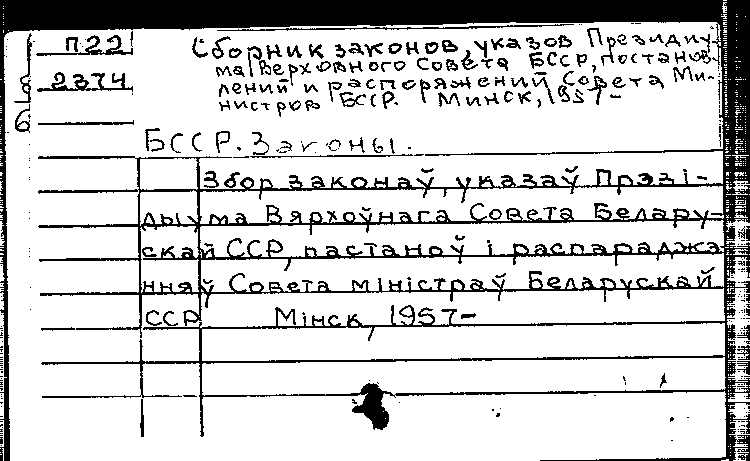 П22
2374
б
Сборник законов, указов Президиу-
ма Верховного Совета БССР, постанов-
лений и распоряжений Совета Ми-
нистров БССР. Минск, 1957-
БССР. Законы.
Збор законаў, указаў Прэзі-
дыума Вярхоўнага Совета Белару-
скай ССР, пастаноў і распараджэ-
нняў Совета міністраў Беларускай
ССР Мінск, 1957-